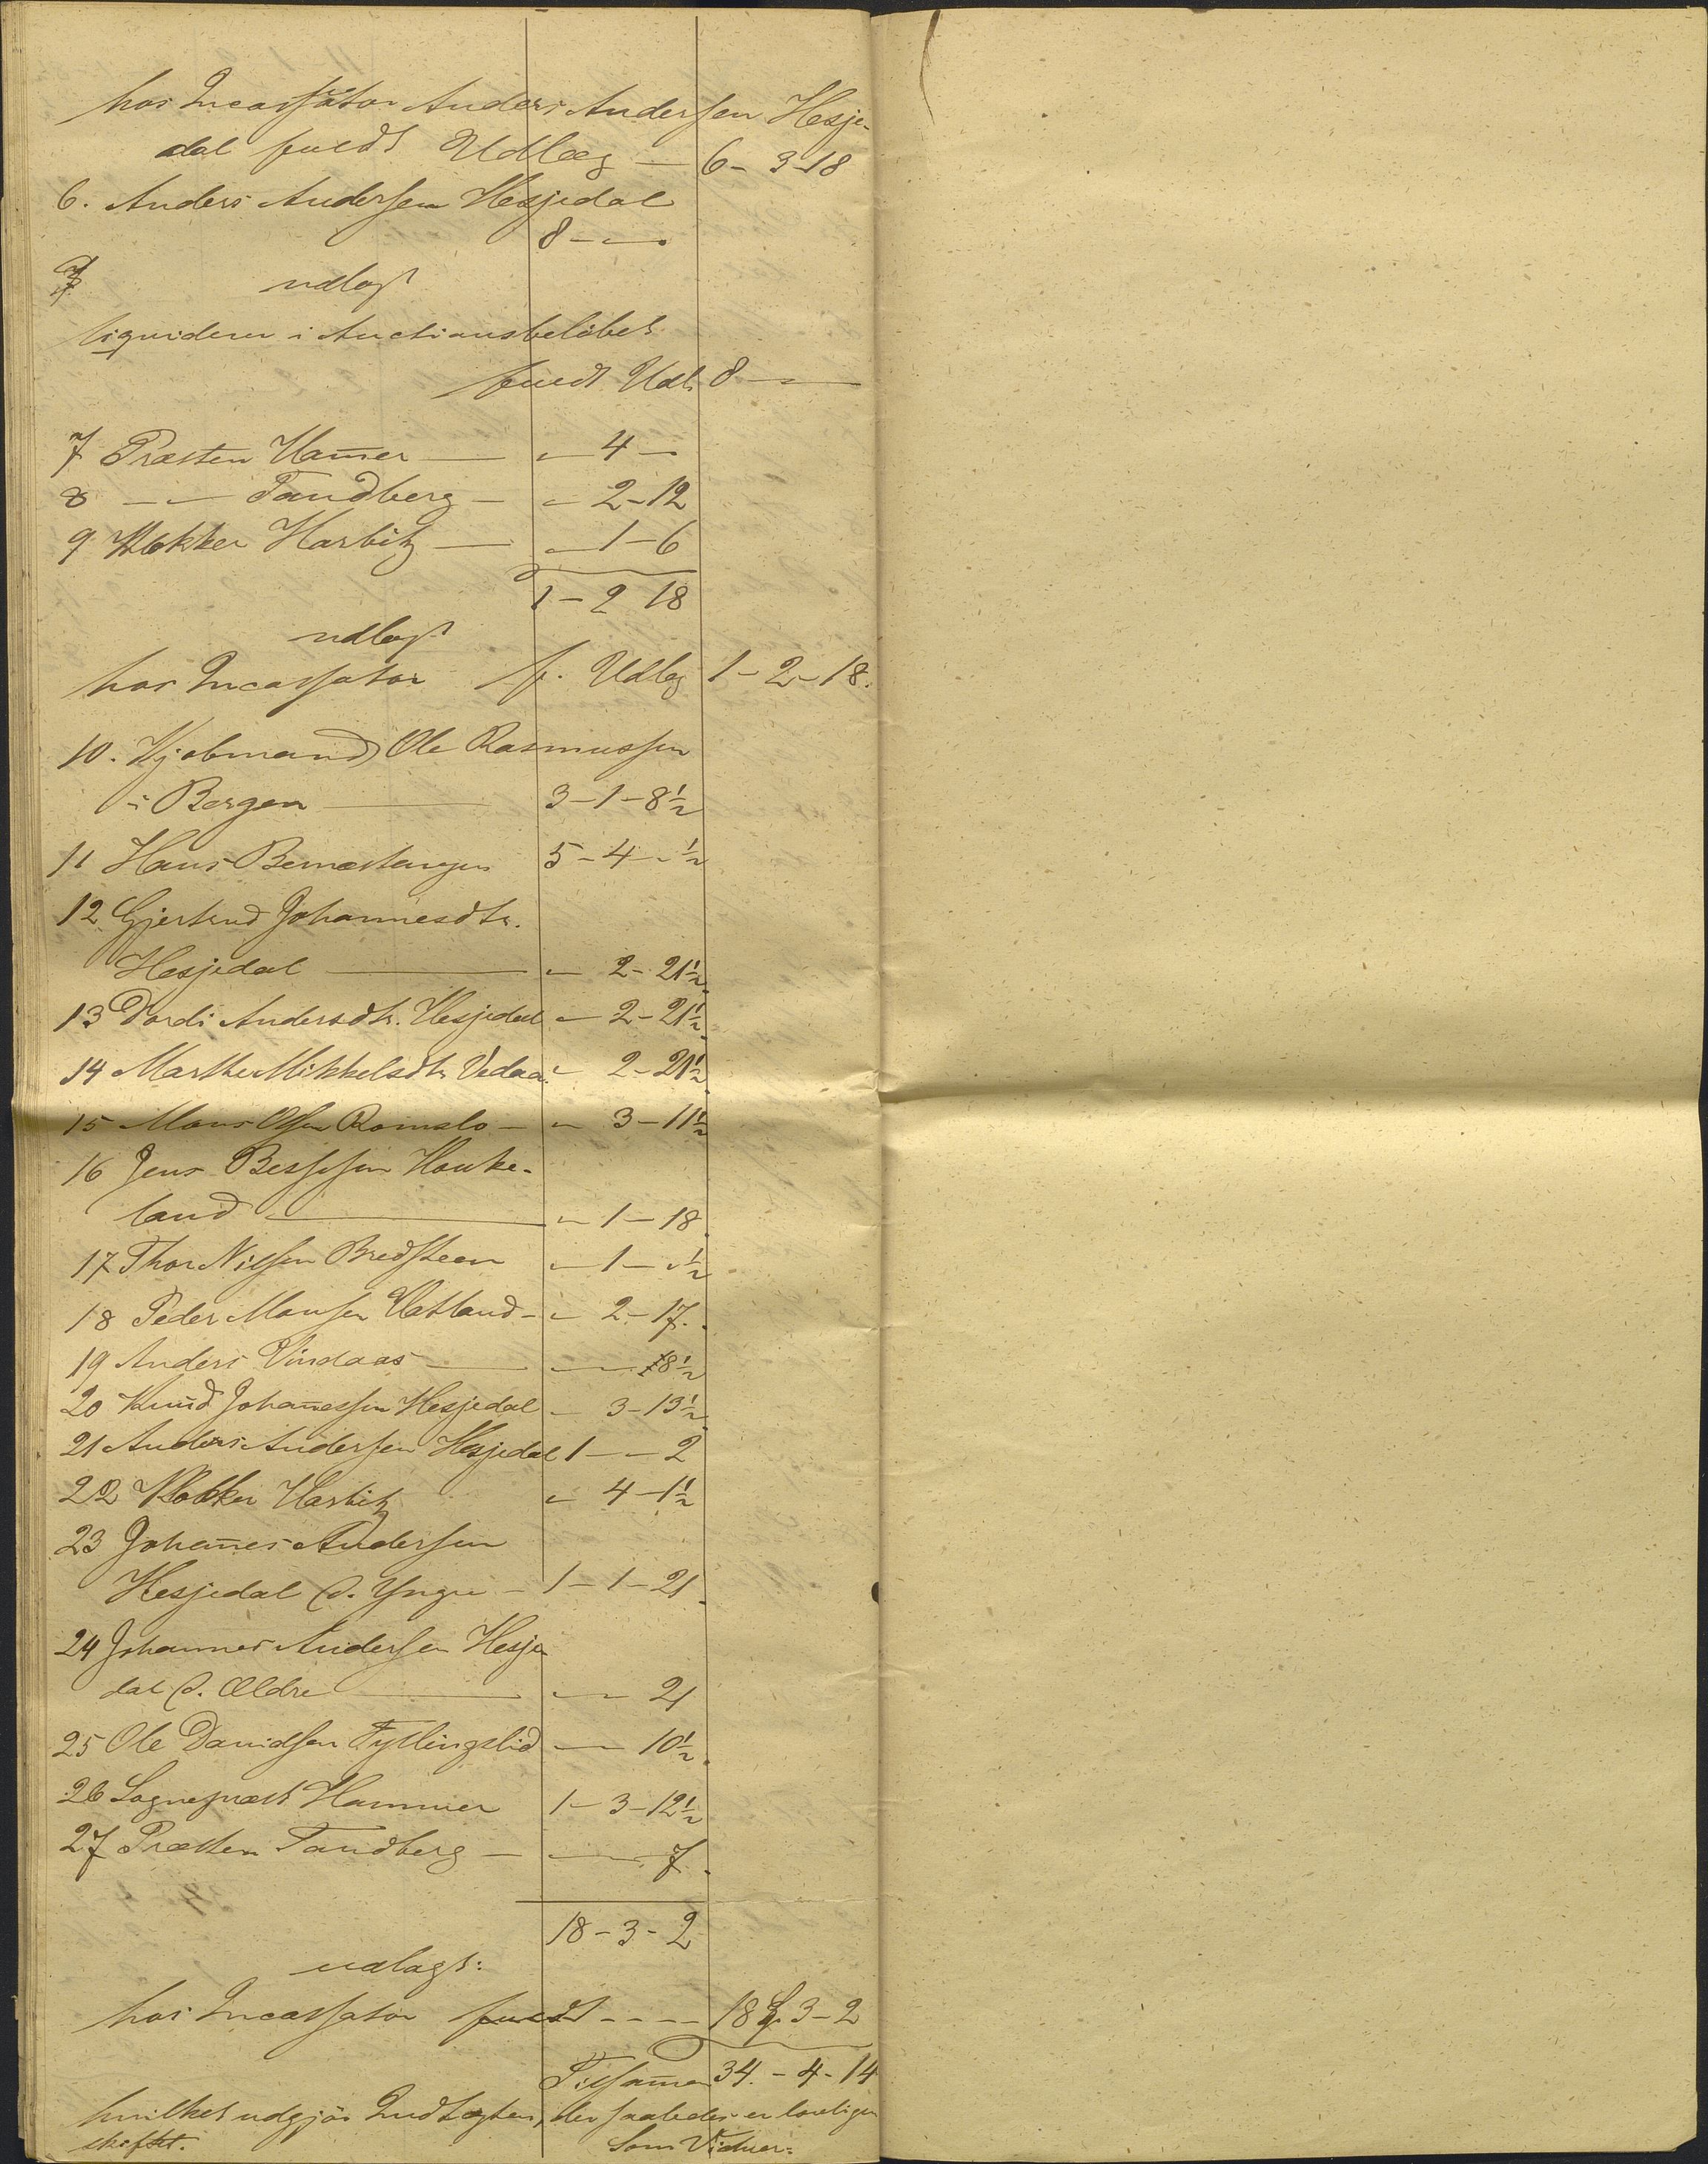 hos Incassator Anders Andersen Hesje-
dal fuldt Udlæg — 6 - 3-18
6. Anders Andersen Hesjedal
8 - —
udlagt
liquiderer i Auctionsbeløbet
fuldt Udl. 8 —
7 Præsten Ham̄er — " 4 -
8 — " — Tandberg — " 2-12
9 Klokker Harbitz — " 1-6
1 - 2 18
udlagt
hos Incassator f. Udlæg 1 - 2 - 18.
10. Kjøbmand Ole Rasmussen
i Bergen — 3 - 1 - 8½
11 Hans Bernæstangen 5 - 4 - ½
12 Gjertrud Johannesdtr.
Hesjedal — " 2 - 21½
13 Dordi Andersdtr. Hesjedal " 2 - 21½
14 Marthe Mikkelsdtr Vedaa - 2 - 21½
15 Mons Olsen Romslo — " 3 - 11½
16 Jens Bessesen Houke-
land — " 1 - 18
17 Thor Nilsen Bredsteen " 1 - " ½
18 Peder Monsen Vatland - " 2 - 17.
19 Anders Vindaas — — 18½
20 Knud Johan̄essen Hesjedal - 3 - 13½
21 Anders Andersen Hesjedal 1 - - 2
22 Klokker Harbitz " 4 - 1½
23 Johan̄es Andersen
Hesjedal d. Yngre - 1 - 1 - 21
24 Johannes Andersen Hesje
dal d. Ældre — — 21
25 Ole Davidsen Fyllingslid — 10½
26 Sognepræst Hammer 1 - 3 - 12½
27 Præsten Tandberg — — 7
18 - 3 - 2
udlagt:
hos Incassator fuldt - - - - 18 3 - 2
Tilsam̄en 34. - 4 - 14
hvilket udgjør Indtægten, der saaledes er lovligen
skiftet. Som Vidner: